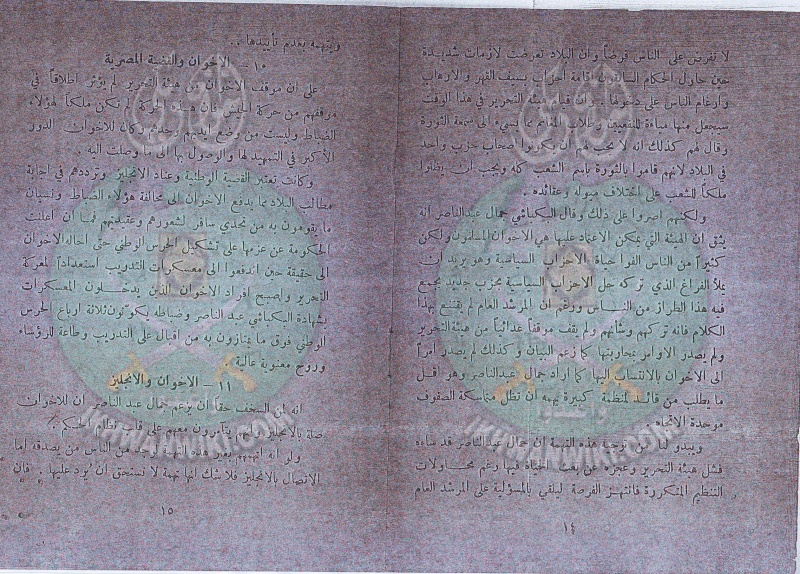 لا تفرض على الناس فرضاً وان البلاد تعرضت لازمات شديدة
حين حاول الحكام السابقون اقامة احزاب بسيف القهر والارهاب
وارغام الناس على دخولها .. وان قيام هيئة التحرير في هذا الوقت
سيجعل منها مباءة للمنتفعين وطلاب المغانم مما يسيء الى سمعة الثورة
وقال لهم كذلك انه لا يجب هم ان يكونوا صحاب حزب واحد
في البلاد لانهم قاموا بالثورة باسم الشعب كله ويجب ان يظلوا
ملكاً للشعب على اختلاف ميوله وعقائده .
ولكنهم اصروا على ذلك وقال البكباشي جمال عبد الناصر انه
يثق ان الهيئة التي يمكن الاعتماد عليها هي الاخوان المسلمون ولكن
كثيراً من الناس الفوا حياة الاحزاب السياسية وهو يريد ان
يملأ الفراغ الذي تركه حل الاحزاب السياسية بحزب جديد يجمع
فيه هذا الطراز من الناس ورغم ان المرشد العام لم يقتنع بهذا
الكلام فانه تركهم وشأنهم ولم يقف موقفاً عدائياً من هيئة التحرير
ولم يصدر الاوامر بمحاربتها كما زعم البيان وكذلك لم يصدر أمراً
الى الاخوان بالانتساب اليها كما اراد جمال عبد الناصر وهو اقل
ما يطلب من قائد لمنظمة كبيرة يهمه ان تظل متماسكة الصفوف
موحدة الاتجاه .
ويبدو لنا من توجيه هذه التهمة ان جمال عبد الناصر قد ساءه
فشل هيئة التحرير وعجزه عن بعث الحياة فيها رغم محاولات
التنظيم المتكررة فانتهز الفرصة ليلقي بالمسؤلية على المرشد العام
١٤
ويتهمه بعدم تأييدها ..
١٥ – الاخوان والقضية المصرية
على ان موقف الاخوان من هيئة التحرير لم يؤثر اطلاقاً في
موقفهم من حركة الجيش فان هذه الحركة لم تكن ملكاً لهؤلاء
الضباط وليست من وضع ايديهم وحدهم وكان للاخوان الدور
الأكبر في التمهيد لها والوصول بها الى ما وصلت اليه .
وكانت تعتبر القضية الوطنية وعناد الانجليز وترددهم في اجابة
مطالب البلاد مما يدفع الاخوان الى محالفة هؤلاء الضباط ونسيان
ما يقومون به من تحدي سافر لشعورهم وعقيدتهم فما ان اعلنت
الحكومة عن عزمها على تشكيل الحرس الوطني حتى احاله الاخوان
الى حقيقة حين اندفعوا الى معسكرات التدريب استعداداً لمعركة
التحرير واصبح افراد الاخوان الذين يدخلون المعسكرات
بشهادة البكباشي عبد الناصر وضباطه يكونون ثلاثة ارباع الحرس
الوطني فوق ما يمتازون به من اقبال على التدريب وطاعة للرؤساء
وروح معنوية عالية
١١ – الاخوان والانجليز
انه لمن السخف حقاً أن يزعم جمال عبد الناصر ان للاخوان
صلة بالانجليز يتآمرون معهم على قلب نظام الحكم
ولو انه اتهمهم بغير هذه التهمة لوجد من الناس من يصدقه اما
الاتصال بالانجليز فلا شك انها تهمة لا تستحق ان يرد عليها . فان
١٥
اخوان ويكي
IKHWANWIKI.COM
وأعدوا
اخوان ويكي
IKHWANWIKI.COM